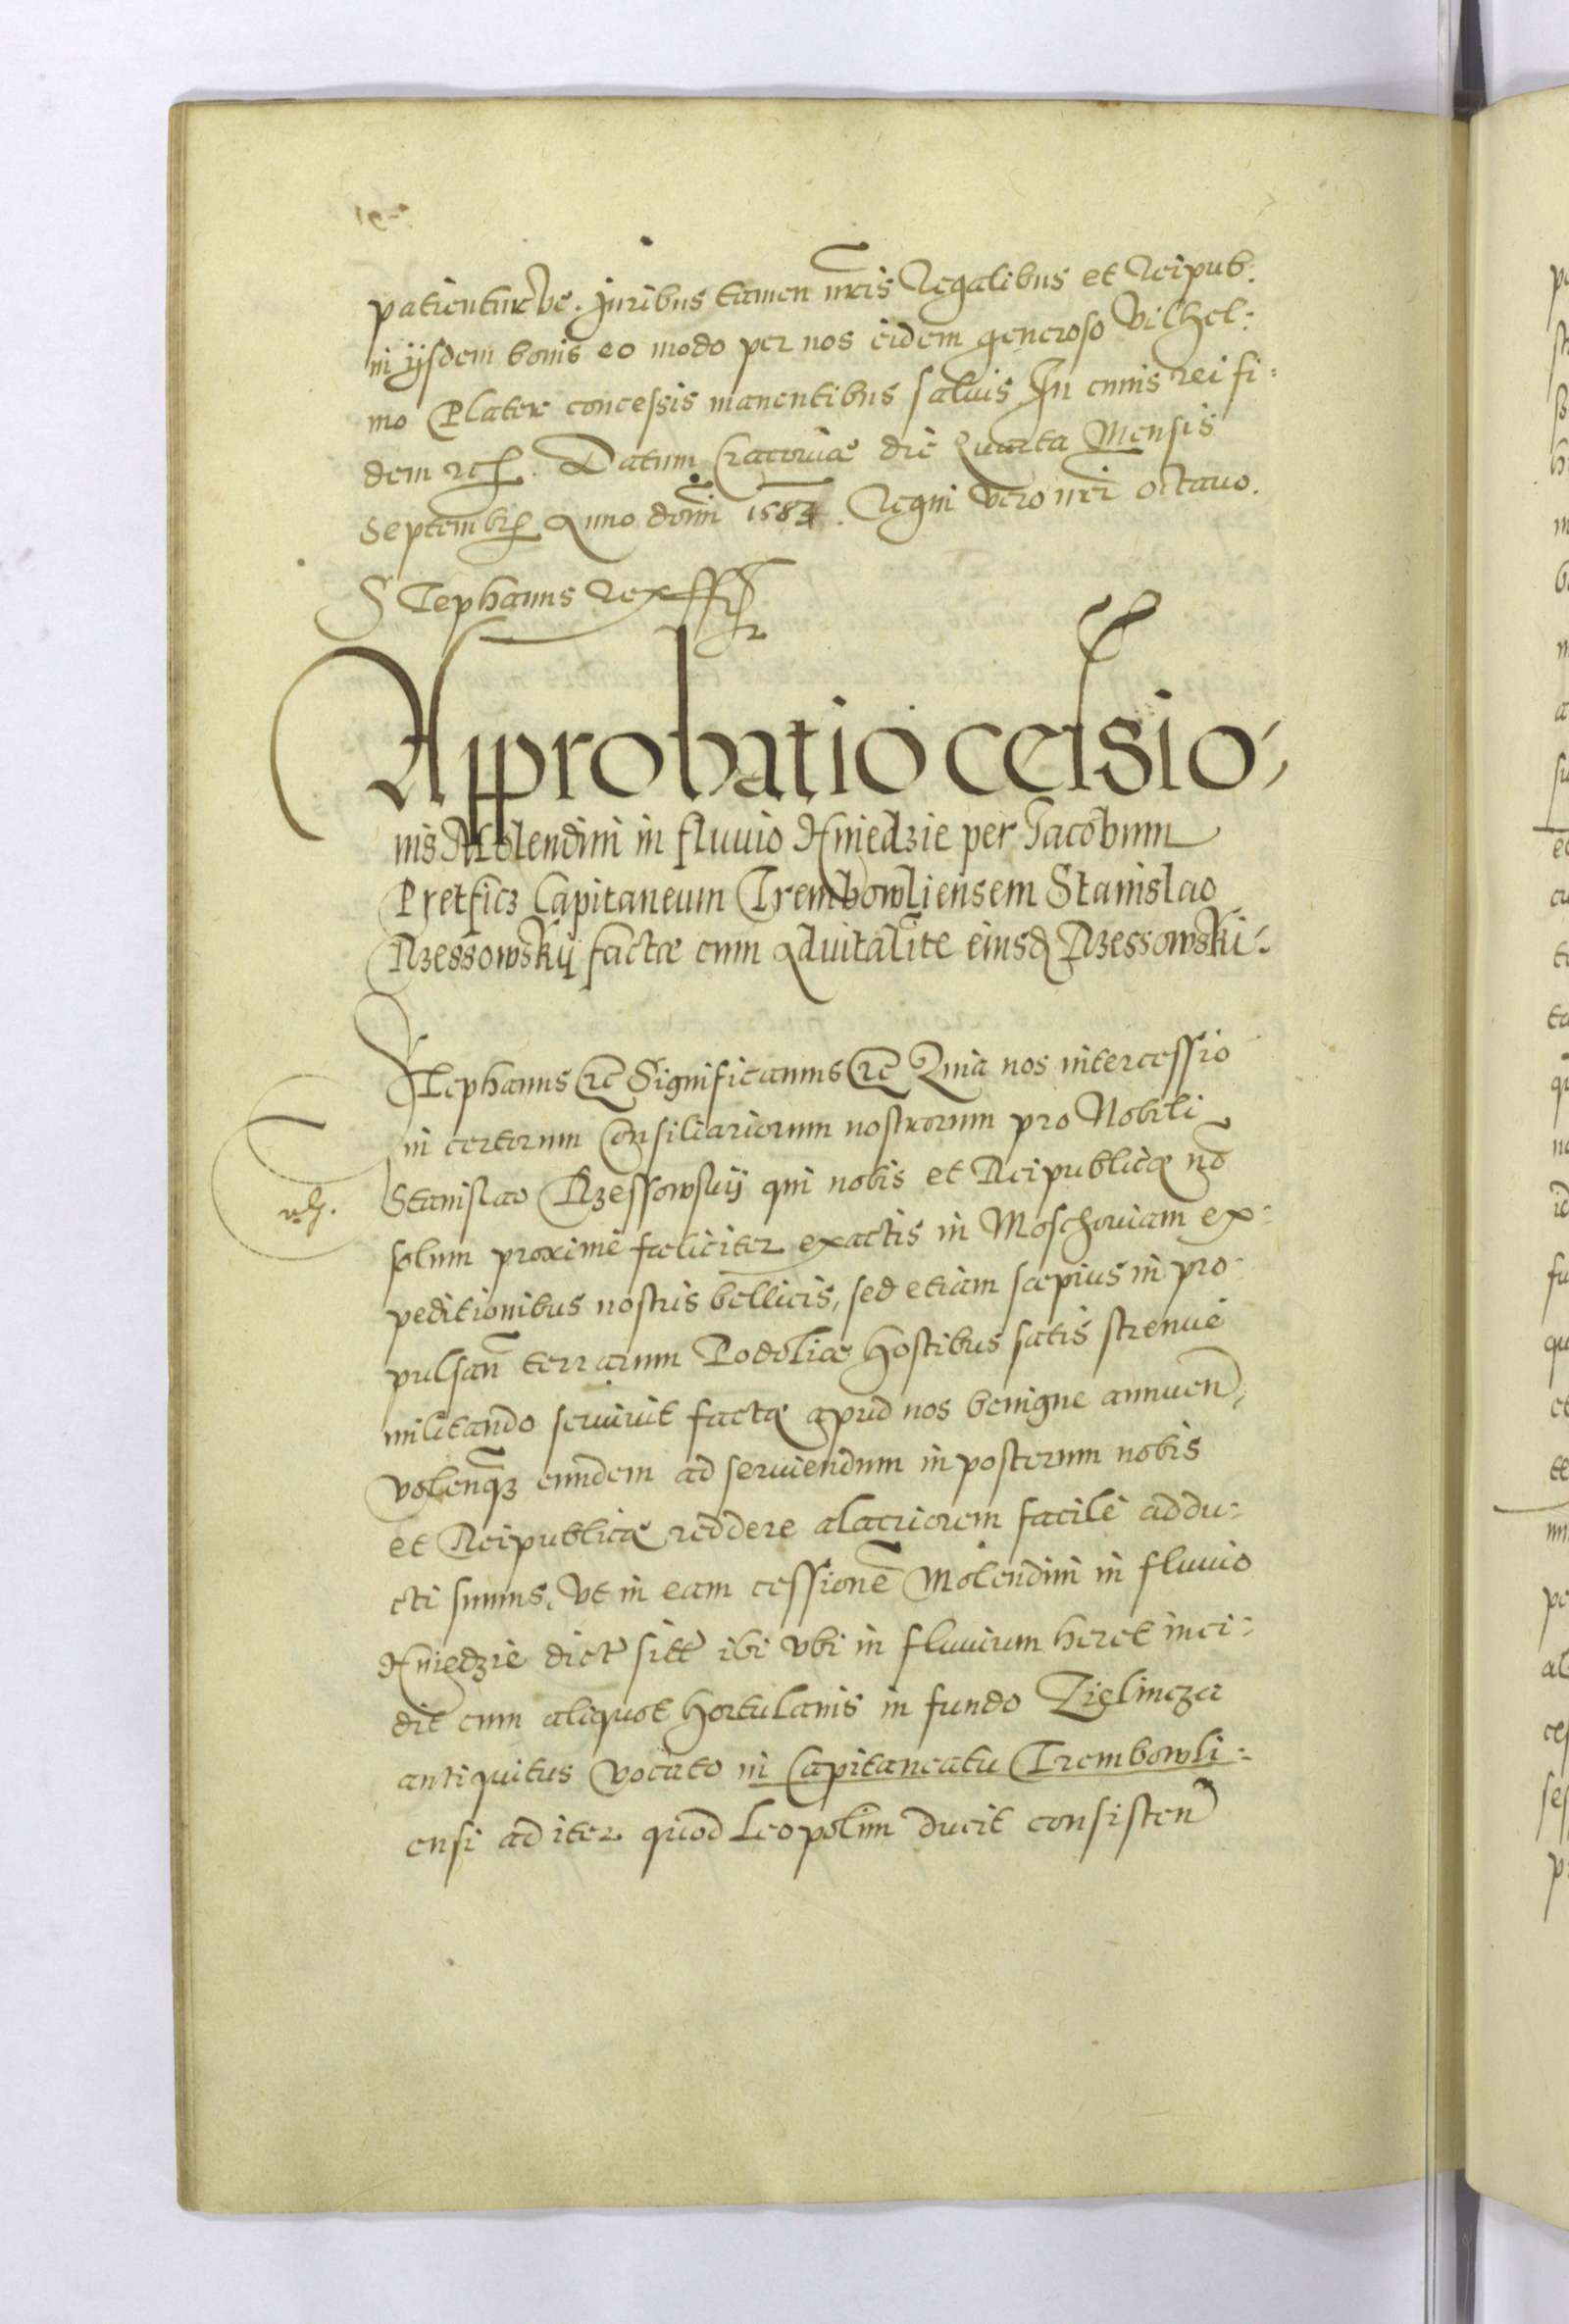 patienturve. Juribus tamen nr̃is Regalibus et Reipub:
in ijsdem bonis eo modo per nos eidem generoso Vilhel:
mo Plater concessis manentibus saluis In cuius rei fi:
dem etc. Datum Cracouiæ die Quarta Mensis
Septembr Anno domi 1583. Regni vero nri octauo.
Stephanus Rex
Approbatio celsio,
nis Molendini in fluuio Hniedzie per Jacobum
Pretficz Capitaneum Trembowliensem Stanislao
Rzessowskij factæ cum aduitalite eiusd Rzessowski:
Stephanus etc Significamus etc Quia nos intercessio
ni certorum Consiliariorum nostrorum pro Nobili
Stanislao Rzessowskij qui nobis et Reipublicæ nō
solum proxime fæliciter exactis in Moschouiam ex:
peditionibus nostris bellicis, sed etiam sæpius in pro:
pulsan̄ terrarum Podoliæ hostibus satis strenue
militando seruiuit factæ apud nos benigne annuen,
volenq̃z eundem ad seruiendum in posterum nobis
et Reipublicæ reddere alacriorem facile addu:
cti sumus, Vt in eam cessionē Molendini in fluuio
Hniedzie dict sitt ibi vbi in fluuium heret inci:
dit cum aliquot hortulanis in fundo Zielincza
antiquitus vocato in Capitaneatu Trembowli:
ensi ad iter quod Leopolim ducit consisten